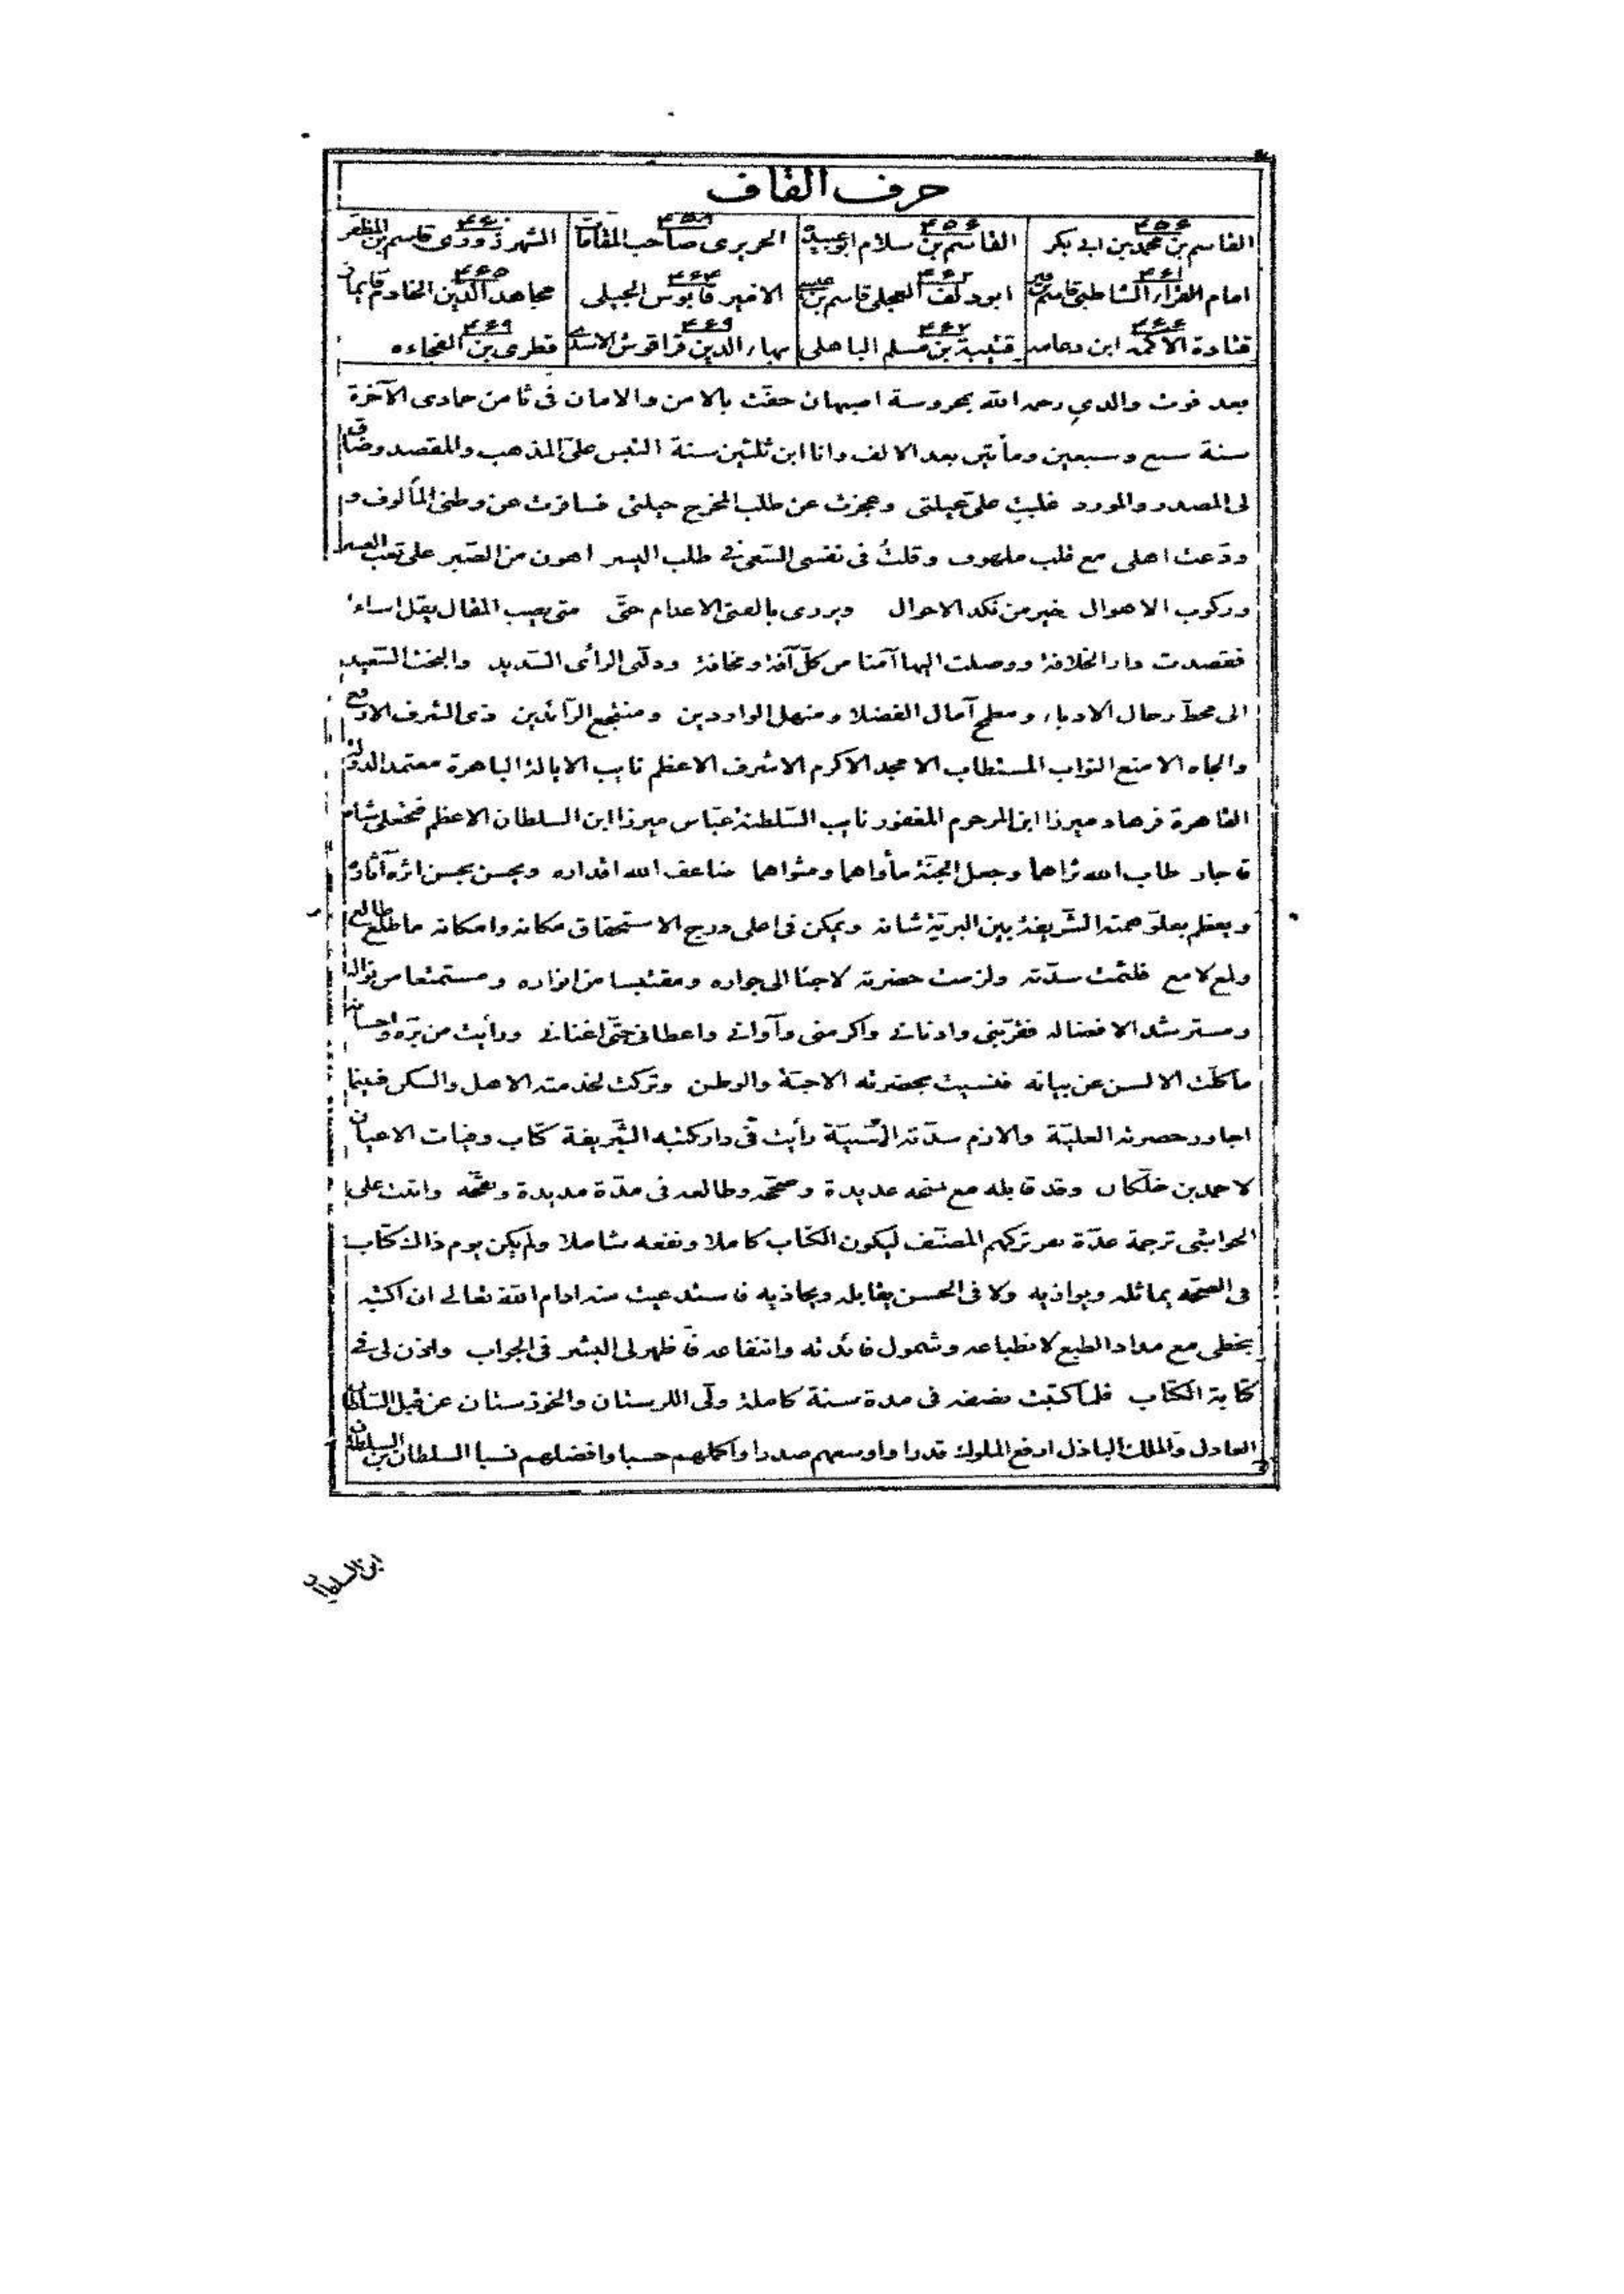 حرف القاف
۴۵۶ ۴۵۶ ۴۵۹ ۴۶۰
القاسم بن محمد بن ابی بکر القاسم بن سلام ابوعبید الحریری صاحب المقامات الشهرزوری قاسم بن المظفر
۴۶۱ ۴۶۲ ۴۶۴ ۴۶۵
امام القراء الشاطبی قاسم بن فیره ابودلف العجلی قاسم بن عیسی الامیر قابوس الجیلی مجاهد الدین الخادم قایماز
۴۶۶ ۴۶۷ ۴۶۹ ۴۶۹
قتادة الاکمه ابن دعامه قتیبة بن مسلم الباهلی بهاء الدین قراقوش الاسدی قطری بن الفجاءه
بعد فوت والدی رحمه الله بمحروسة اصبهان حفّت بالامن والامان فی ثامن جمادی الآخرة
سنة سبع وسبعین ومأتین بعد الالف وانا ابن ثلثین سنة التبس علیّ المذهب والمقصد وضاق
لی المصدر والمورد غلبت علیّ عیلتی وعجزت عن طلب المخرج حیلتی فسافرت عن وطنی المألوف و
ودّعت اهلی مع قلب ملهوف وقلتُ فی نفسی السّعی فی طلب الیسر اهون من الصّبر علی تعب العسر
ورکوب الاهوال خیر من نکد الاحوال ویزری بالفتی الاعدام حتّی متی یصب المقال یقل اساء
فقصدت دار الخلافة ووصلت الیها آمنا من کلّ آفة ومخافة ودلّنی الرأی السّدید والبخت السّعید
الی محطّ رحال الادباء ومطمح آمال الفضلا ومنهل الواردین ومنتجع الرّائدین ذی الشرف الارفع
والجاه الامنع النوّاب المستطاب الامجد الاکرم الاشرف الاعظم نایب الایالة الباهرة معتمد الدولة
القاهرة فرهاد میرزا ابن المرحوم المغفور نایب السّلطنة عبّاس میرزا ابن السلطان الاعظم فتحعلی شاه
قاجار طاب الله ثراهما وجعل الجنّة مأواهما ومثواهما ضاعف الله اقداره ویحسن بحسن اثره آثاره
ویعظم بعلوّ همته الشّریفة بین البریّة شانه ویمکن فی اعلی درج الاستحقاق مکانه وامکانه ما طلع طالع
ولمع لامع فلثمت سدّته ولزمت حضرته لاجئا الی جواره ومقتبسا من انواره ومستمتعا من نواله
ومسترشدا لافضاله فقرّبنی وادنانی واکرمنی وآوانی واعطانی حتّی اغنانی ورأیت من برّه واحسانه
ما کلّت الالسن عن بیانه فنسیت بحضرته الاحبّة والوطن وترکت لخدمته الاهل والسکن فبینما
اجاور حضرته العلیّة والازم سدّته السّنیّة رأیت فی دار کتبه الشّریفة کتاب وفیات الاعیان
لاحمد بن خلّکان وقد قابله مع نسخه عدیدة وصحّحه وطالعه فی مدّة مدیدة ونقّحه واثبت علی
الحواشی ترجمة عدّة ترکهم المصنّف لیکون الکتاب کاملا ونفعه شاملا ولم یکن یوم ذاک کتاب
فی الصحّه یماثله ویوازیه ولا فی الحسن یقابله ویحاذیه فاستدعیت منه ادام الله تعالی ان اکتبه
بخطی مع مداد الطبع لانطباعه وشمول فائدته وانتفاعه فظهر لی البشر فی الجواب واذن لی فی
کتابة الکتاب فلما کتبت نصفه فی مدة سنة کاملة ولّی اللرستان والخوزستان عن قبل السّلطان
العادل والملک الباذل ارفع الملوک قدرا واوسعهم صدرا واکملهم حسبا وافضلهم نسبا السلطان بن السلطان
ابن السلطان